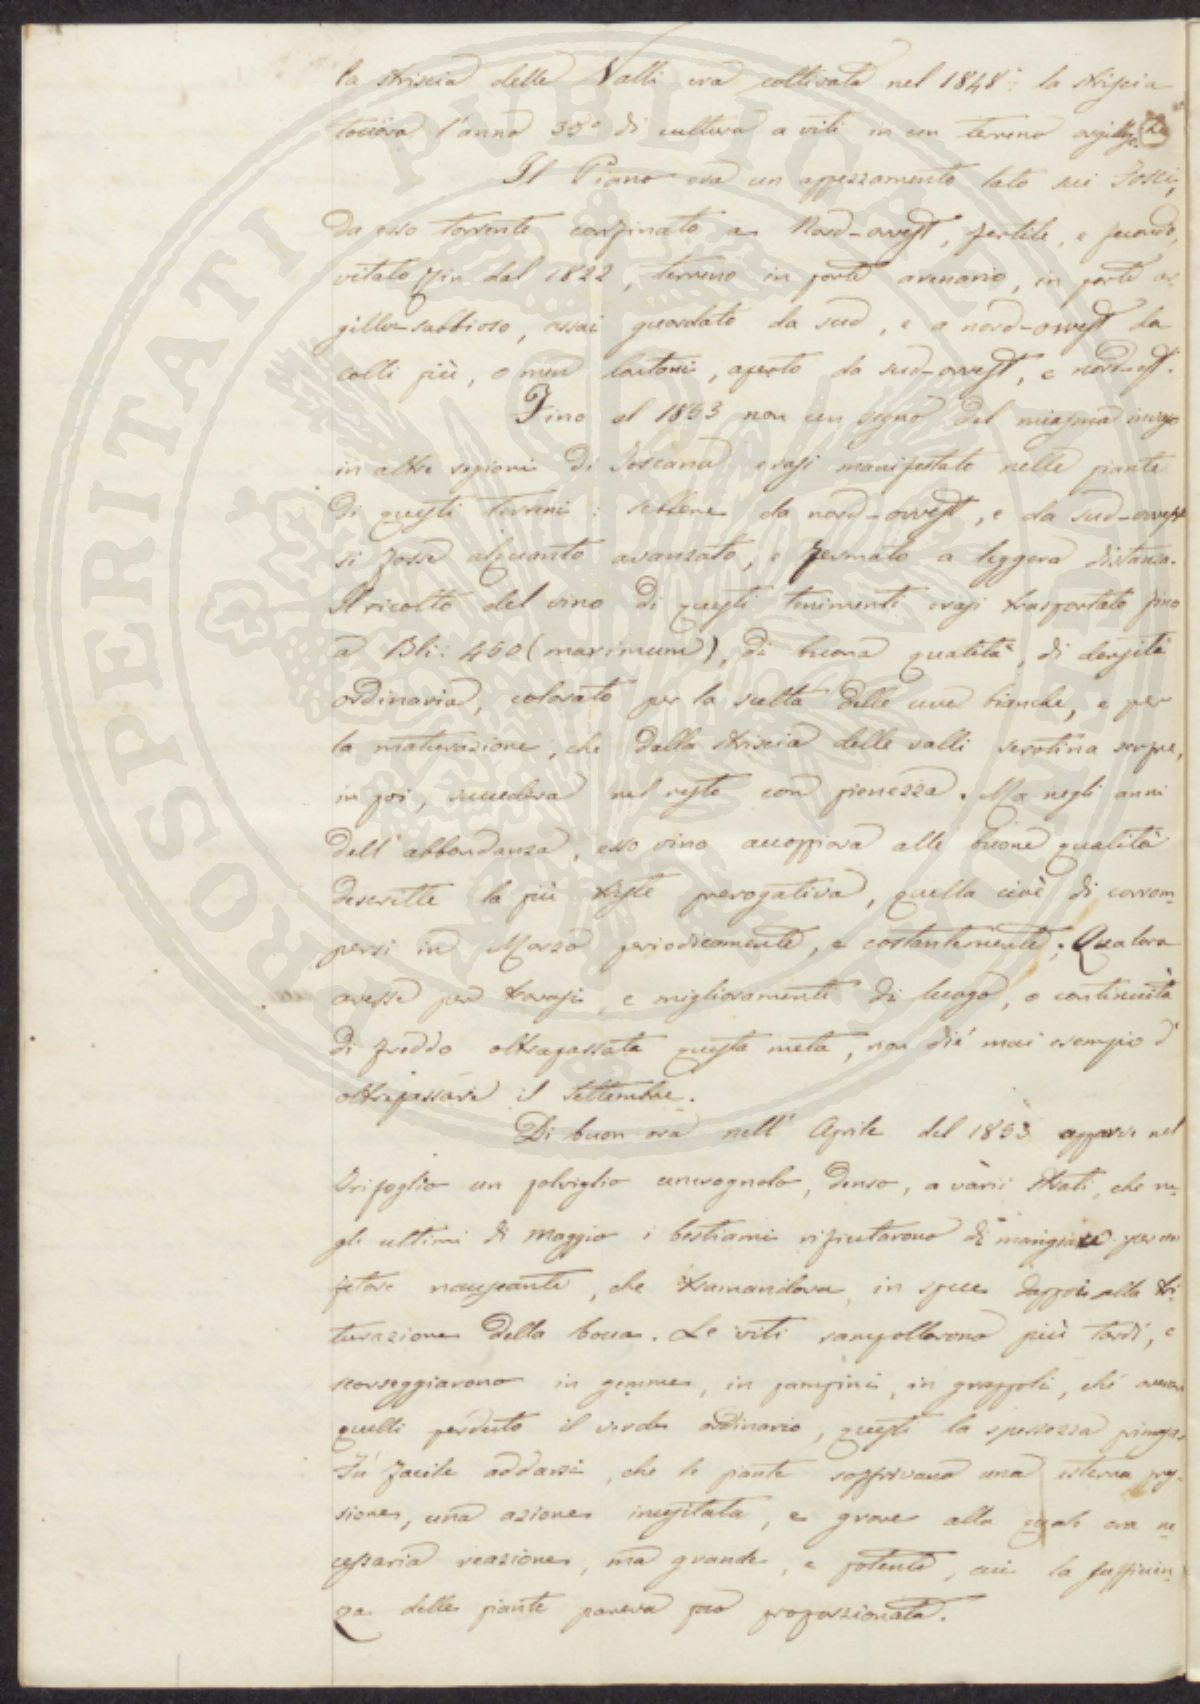 la striscia delle Valli era coltivata nel 1848: la striscia
toccava l'anno 38° di cultura a viti in un terreno argilloso.
Il Piano era un appezzamento lato sui Fosci,
da esso torrente confinato a Nord-ovest, fertile, e fecondo,
vitato fin dal 1822, terreno in parte arenario, in parte ar-
gillo-sabbioso, assai guardato da sud, e a nord-ovest da
colli più, o men lontani, aperto da sud-ovest, e nord-est.
Fino al 1853 non un segno del miasma invaso
in altre regioni di Toscana erasi manifestato nelle piante
di questi terreni: sebbene da nord-ovest, e da sud-ovest
si fosse alquanto avanzato, e fermato a leggera distanza.
Il ricolto del vino di questi tenimenti erasi trasportato fino
a Bli: 460 (maximum), di buona qualità, di densità
ordinaria, colorato per la scelta delle uve bianche, e per
la maturazione, che dalla striscia delle valli serotina sempre,
in poi, succedeva nel resto con pienezza. Ma negli anni
dell'abbondanza, esso vino accoppiava alle buone qualità
descritte la più triste prerogativa, quella cioè di corrom-
persi in Marzo periodicamente, e costantemente; Qualora
avesse per travasi, e miglioramenti di luogo, o continuità
di freddo oltrapassata questa meta, non diè mai esempio d'
oltrepassare il Settembre.
Di buon ora nell'Aprile del 1853 apparve nel
Trifoglio un polviglio cenerognolo, denso, a varii strati, che ne-
gli ultimi di Maggio i bestiami rifiutarono di mangiare per un
fetore nauseante, che tramandava, in specie dappoi alla tri-
turazione della bocca. Le viti rampollarono più tardi, e
scarseggiarono in gemme, in pampini, in grappoli, chè avean
quelli perduto il verde ordinario, questi la spessezza primiera.
Fu facile addarsi, che le piante soffrivano una esterna pres-
sione, una azione inusitata, e grave alla quale era ne-
cessaria reazione, ma grande, e potente, cui la sufficien-
za delle piante pareva poco proporzionata.